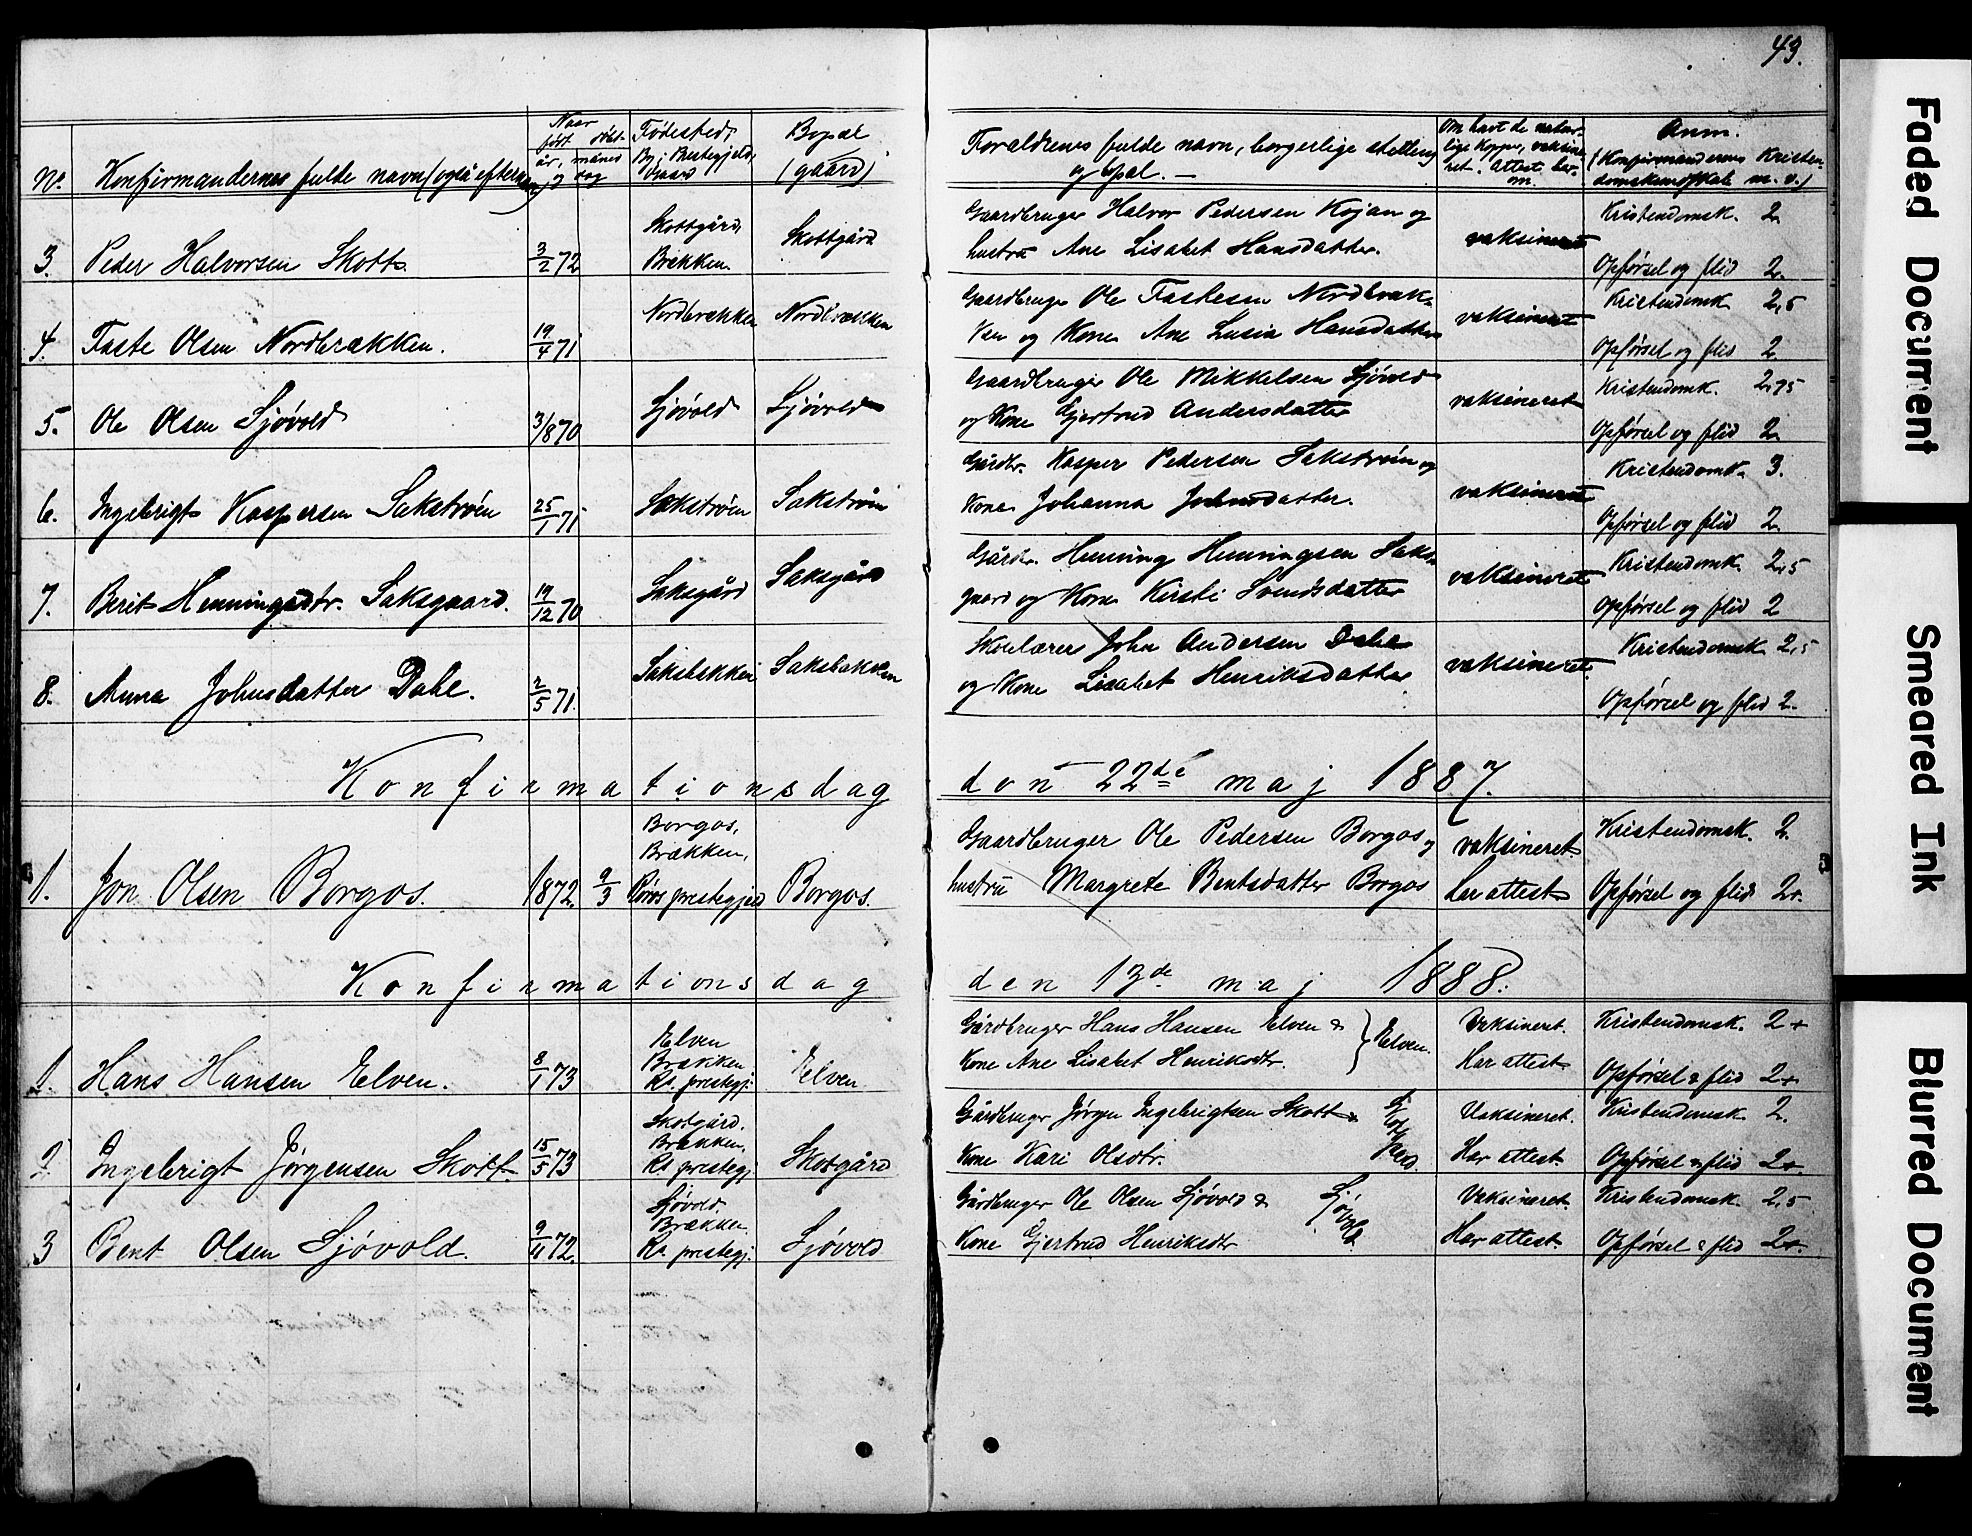 49.
No. Konfirmandernes fulde navn (også efternavn)
Naar født døbt
år, måned og dag
Fødested, By, Prestegjeld,
Bopæl (gaard)
Forældrenes fulde navn, borgerlige stilling
og bopæl. —
Om havt de naturlige kopper, vaksineret. Attest herom.
Anm. (Konfirmandernes Kristendomskundskab m. v.)
3. Peder Halvorsen Skott. 3/2 72 Skottgård, Brækken. Skottgård
Gaardbruger Halvor Pedersen Kojan og
hustru Ane Lisabet Hansdatter.
vaksineret
Kristendomsk. 2
Opførsel og flid 2.
4. Faste Olsen Nordbrækken. 19/4 71 Nordbrækken Nordbrækken
Gaardbruger Ole Fastesen Nordbræk-
ken og Kone Ane Lusia Hansdatter
vaksineret
Kristendomk 2,5
Opførsel og flid 2.
5. Ole Olsen Sjøvold 3/8 70 Sjøvold Sjøvold
Gaardbruger Ole Mikkelsen Sjøvold
og Kone Gjertrud Andersdatter
vaksineret
Kristendomk. 2,75
Opførsel og flid 2
6. Ingebrigt Kaspersen Sakstrøen 25/1 71 Sakstrøen Sakstrøen
Gårdbr. Kasper Pedersen Sakstrøen og
Kone Johanna Johnsdatter.
vaksineret
Kristendomk. 3.
Opførsel og flid 2.
7. Berit Henningsdtr. Saksgaard. 19/12 70 Saksgård Saksgård
Gårdbr. Henning Henningsen Saks-
gaard og Kone Kirsti Svendsdatter
vaksineret
Kristendomk. 2,5
Opførsel og flid 2
8. Anna Johnsdatter Dahl. 2/5 71. Saksbakken Saksbakken
Skolelærer John Andersen Dahl
og Kone Lisabet Henriksdatter
vaksineret.
Kristendomsk 2,5
Opførsel og flid 2.
Konfirmationsdag den 22de maj 1887.
1. Jon Olsen Borgos. 1872. 9/3 Borgos, Brækken, Røros prestegjeld Borgos.
Gaardbruger Ole Pedersen Borgos og
hustru Margrete Bentsdatter Borgos
vaksineret.
har attest
Kristendomsk. 2.
Opførsel og flid 2+.
Konfirmationsdag den 13de maj 1888.
1. Hans Hansen Elven. 8/1 73 Elven Brækken Rs. prestegj. Elven
Gårdbruger Hans Hansen Elven &
Kone Ane Lisabet Henriksdtr.
Elven.
Vaksineret.
Har attest
Kristendomsk. 2+
Opførsel & flid 2+
2. Ingebrigt Jørgensen Skott. 15/5 73 Skotgård. Brækken. Rs prestegj. Skotgård
Gårdbruger Jørgen Ingebrigtsen Skott &
Kone Kari Olsdtr.
Vaksineret.
Har attest.
Kristendomsk 2.
Opførsel & flid 2+.
3 Bent Olsen Sjøvold. 9/11 72. Sjøvold. Brækken. Rs prestegj. Sjøvold
Gårdbruger Ole Olsen Sjøvold &
Kone Gjertrud Henriksdtr
Sjøvold.
Vaksineret.
Har attest.
Kristendomsk. 2,5
Opførsel & flid 2+.
Faded Document
Smeared Ink
Blurred Document